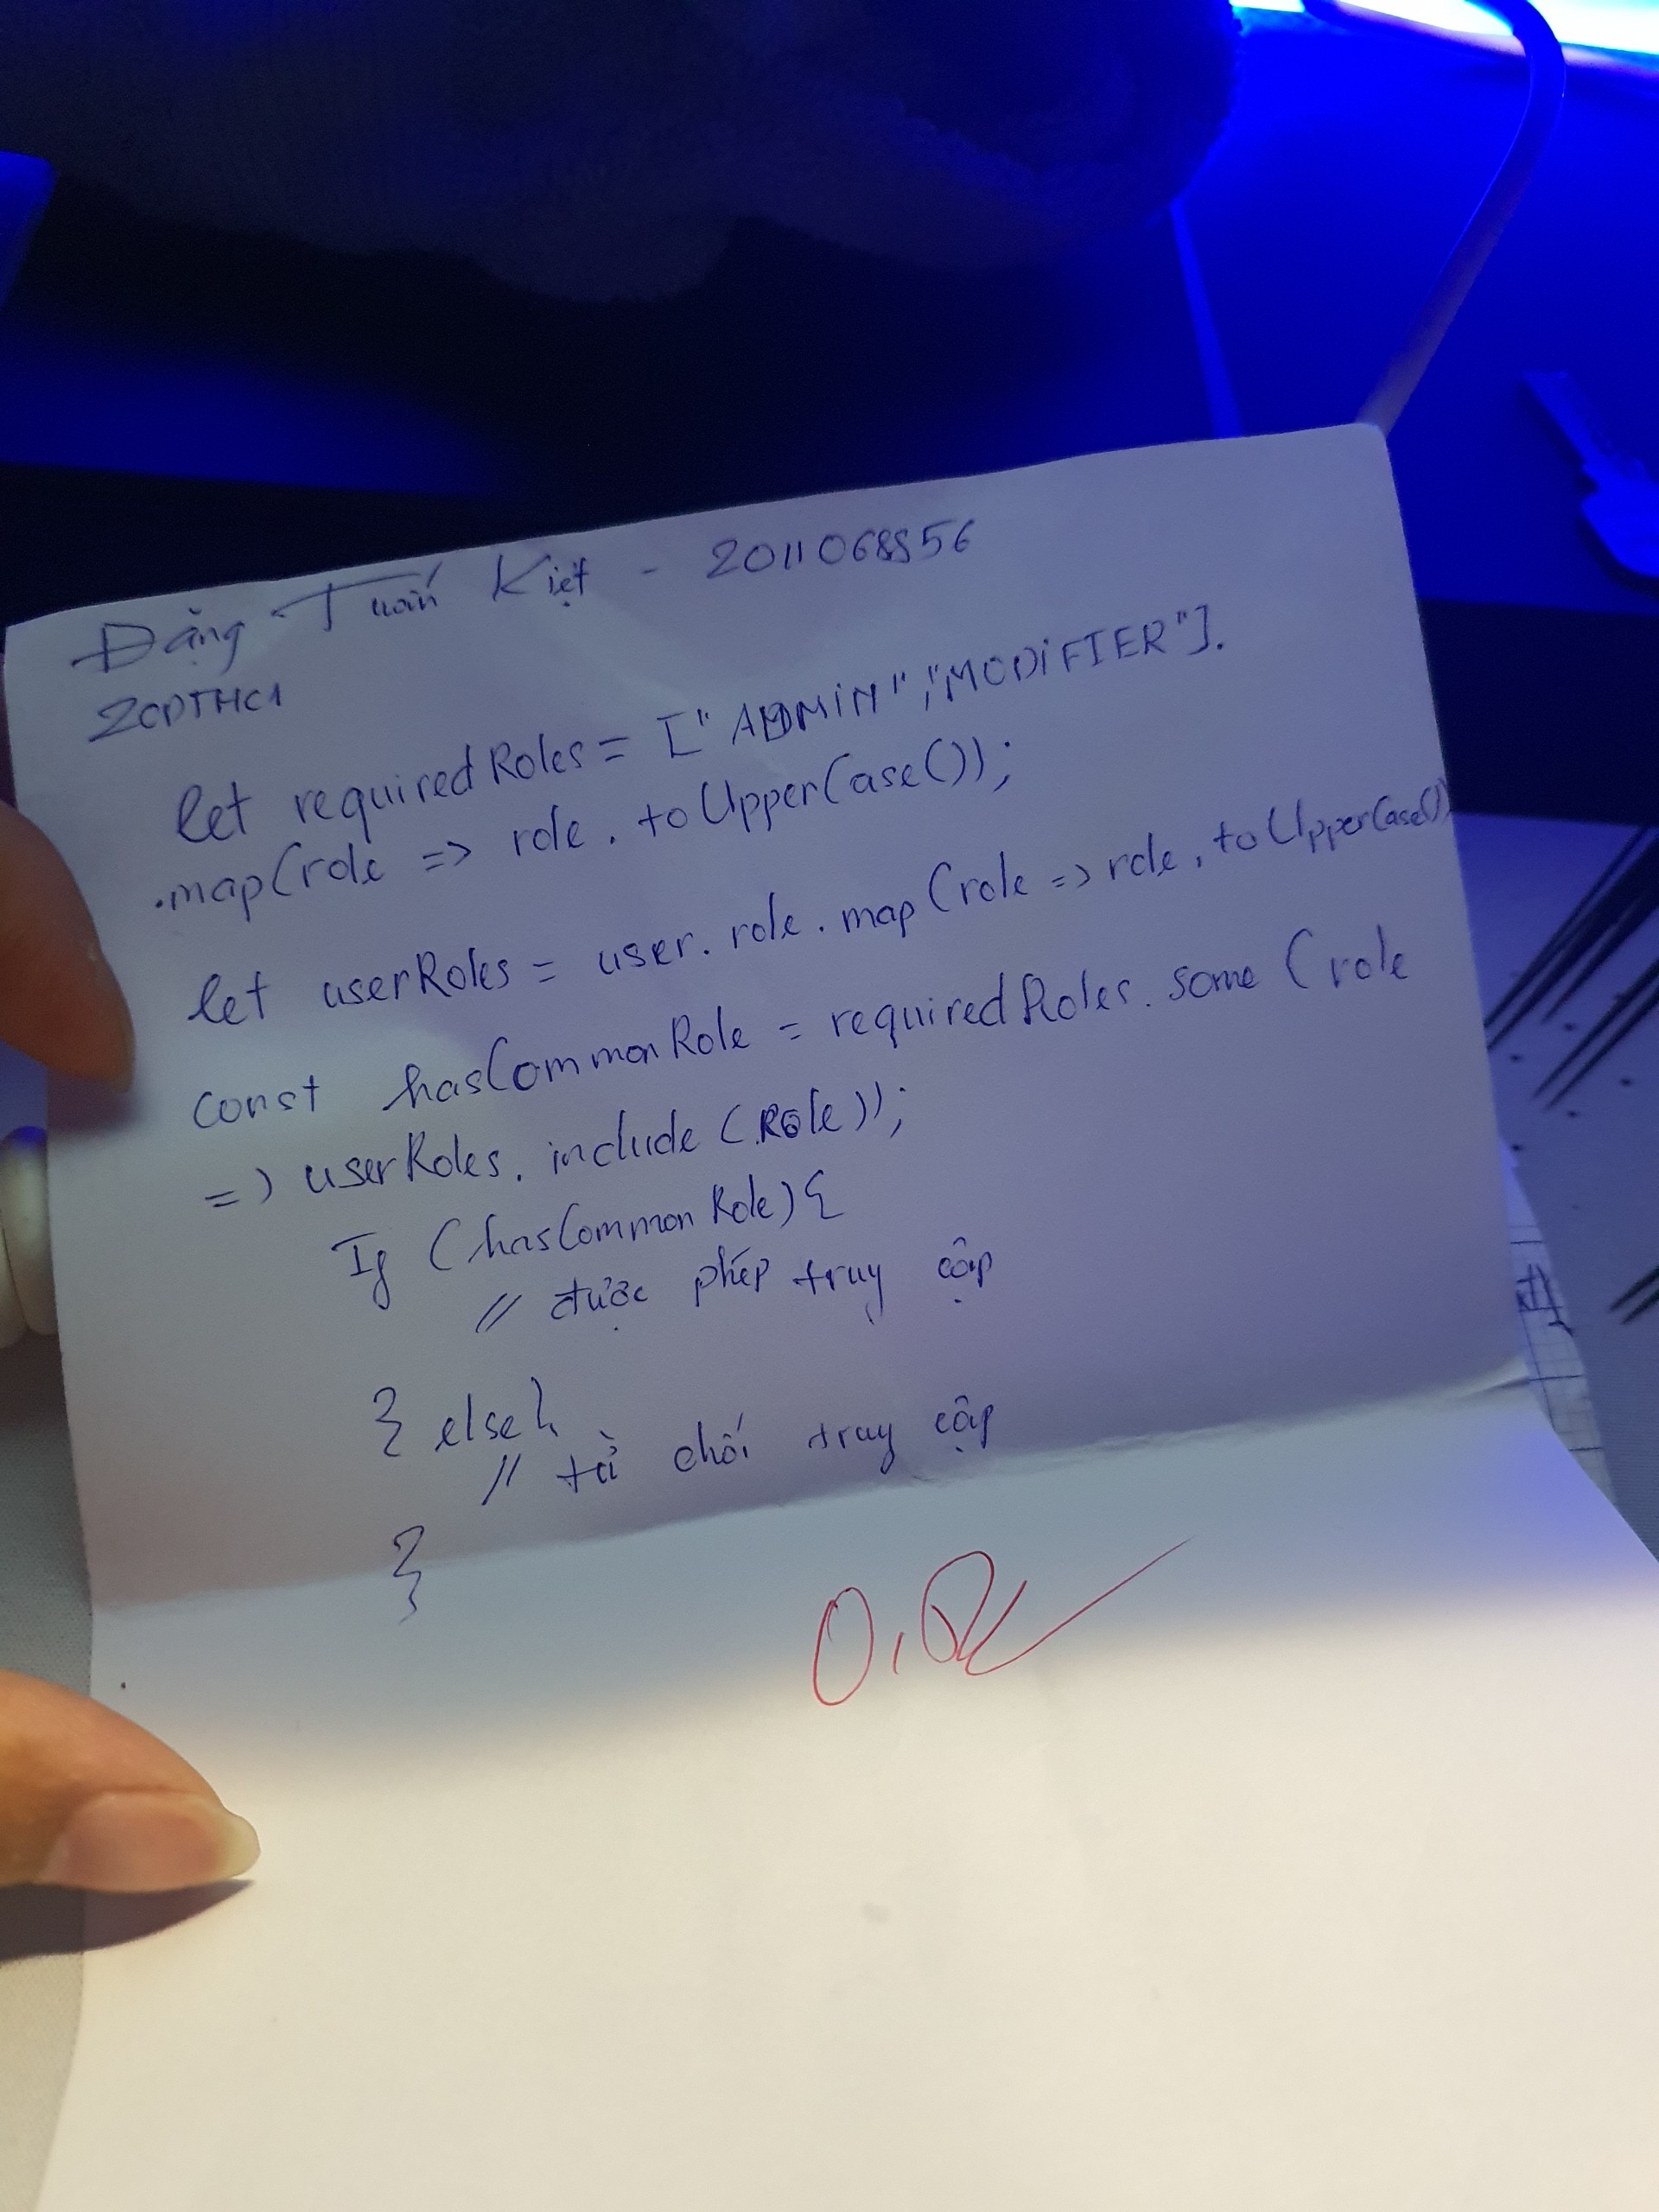 Đặng Tuấn Kiệt - 2011068856
20DTHC1
let requiredRoles = ["ADMIN","MODIFIER"].
.map(role => role.toUpperCase());
let userRoles = user.role.map(role => role.toUpperCase()
const hasCommonRole = requiredRoles.some(role
=> userRoles.include(Role));
If (hasCommonRole){
// được phép truy cập
} else{
// từ chối truy cập
}